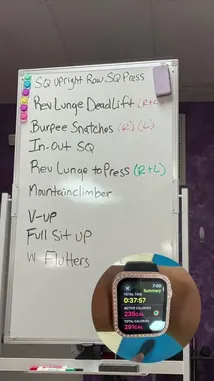 SQ Upright Row SQ Press
Rev Lunge DeadLift (R+L)
Burpee Snatches (R) (L)
In-Out SQ
Rev Lunge to Press (R+L)
Mountainclimber
V-up
Full Sit up
W Flutters
7:00
Summary
TOTAL TIME
0:37:57
ACTIVE CALORIES
235CAL
TOTAL CALORIES
291CAL